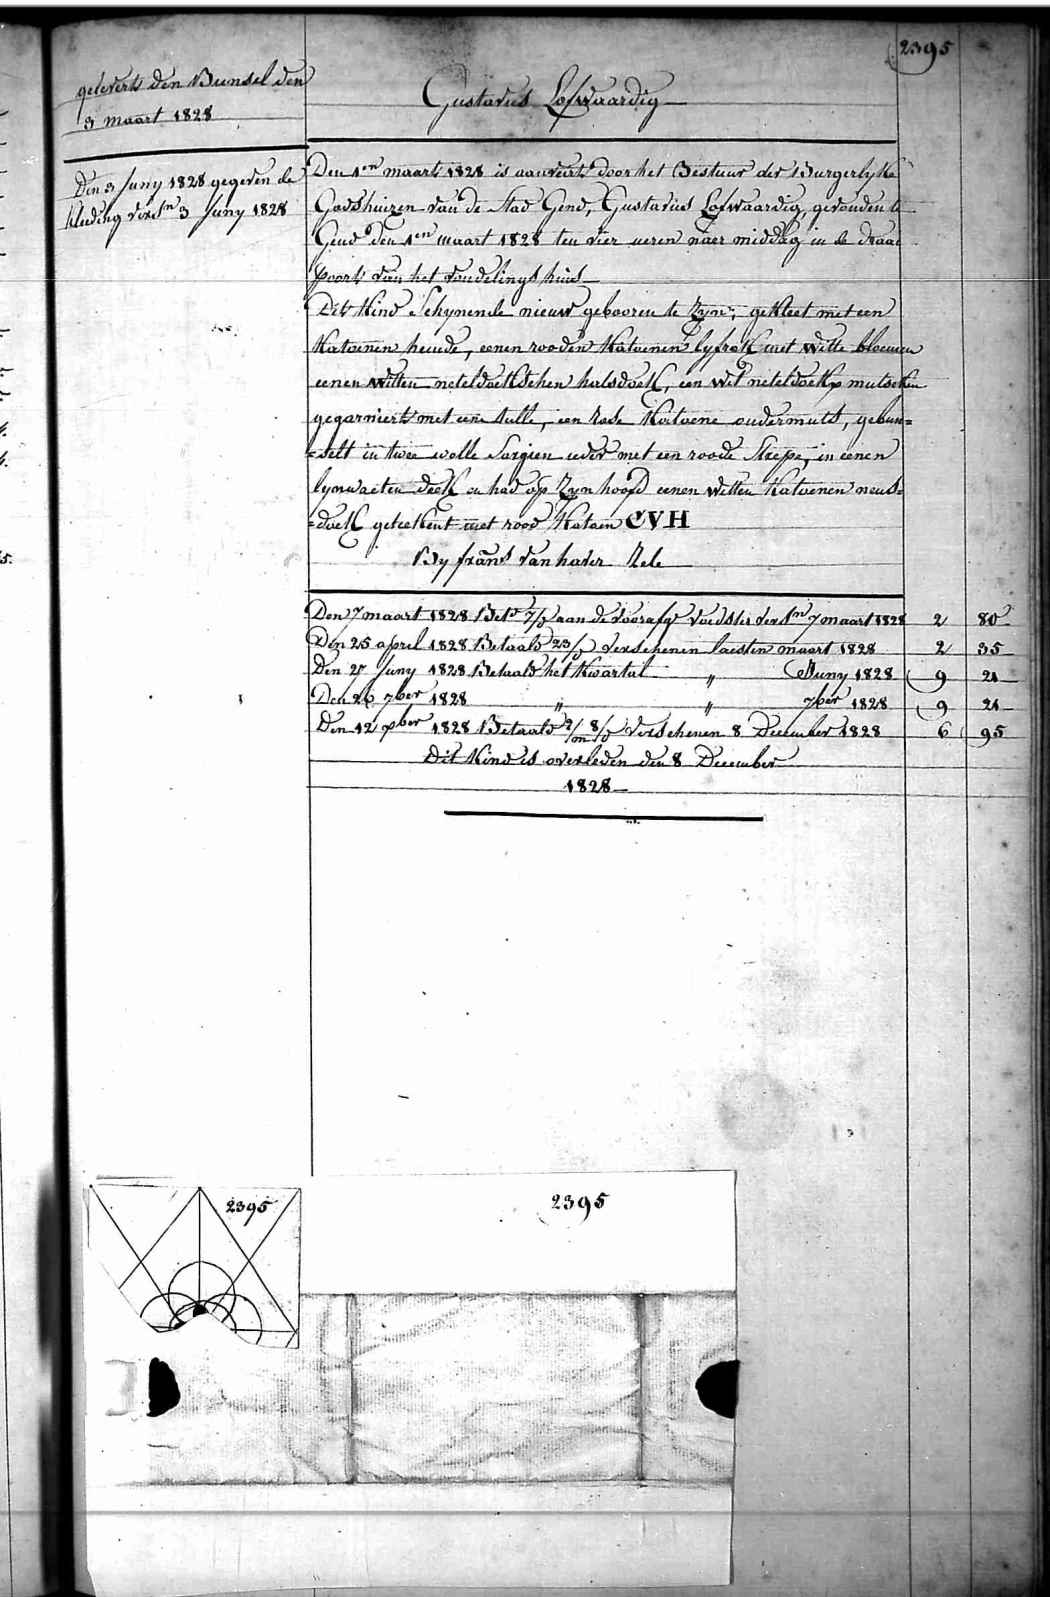 2395
geleverts den Bunsel den
3 maart 1828
Gustavus Lofwaardig
Den 3 Juny 1828 gegeven de
kleeding versn 3 Juny 1828
Den 1en maart 1828 is aanveirt door het Bestuur der Burgerlyke
Godshuizen van de Stad Gend, Gustavus Lofwaardig, gevonden te
Gend den 1en maart 1828 ten vier ueren naer middag in de draai
poort van het vondelings huis
Dit Kind Schynende nieuw gebooren te Zyn, gekleet met een
Katoenen hemde, eenen rooden Katoenen lyfrok met witte bloemen
eenen witten neteldoekschen halsdoek, een wit neteldoeks mutsken
gegarniert met eene tulle, een rode Katoene ondermuts, gebun=
=selt in twee wolle Sargien ieder met een roode Strepe, in eenen
lynwaeten doek en had op Zyn hoofd eenen witten Katoenen neus=
=doek geteekent met rood Katoen CVH
By frans van haver Zele
Den 7 maart 1828 Bet 7/d aan de voorafge voedster versn 7 maart 1828 2 80
Den 25 april 1828 Betaald 23/d verschenen laesten maart 1828 2 35
Den 27 Juny 1828 Betaald het Kwartal " Juny 1828 9 21
Den 26 7ber 1828 " " 7ber 1828 9 21
Den 12 xber 1828 Betaald 2/m 8/d verschenen 8 December 1828 6 95
Dit Kind is overleden den 8 December
1828
2395
2395